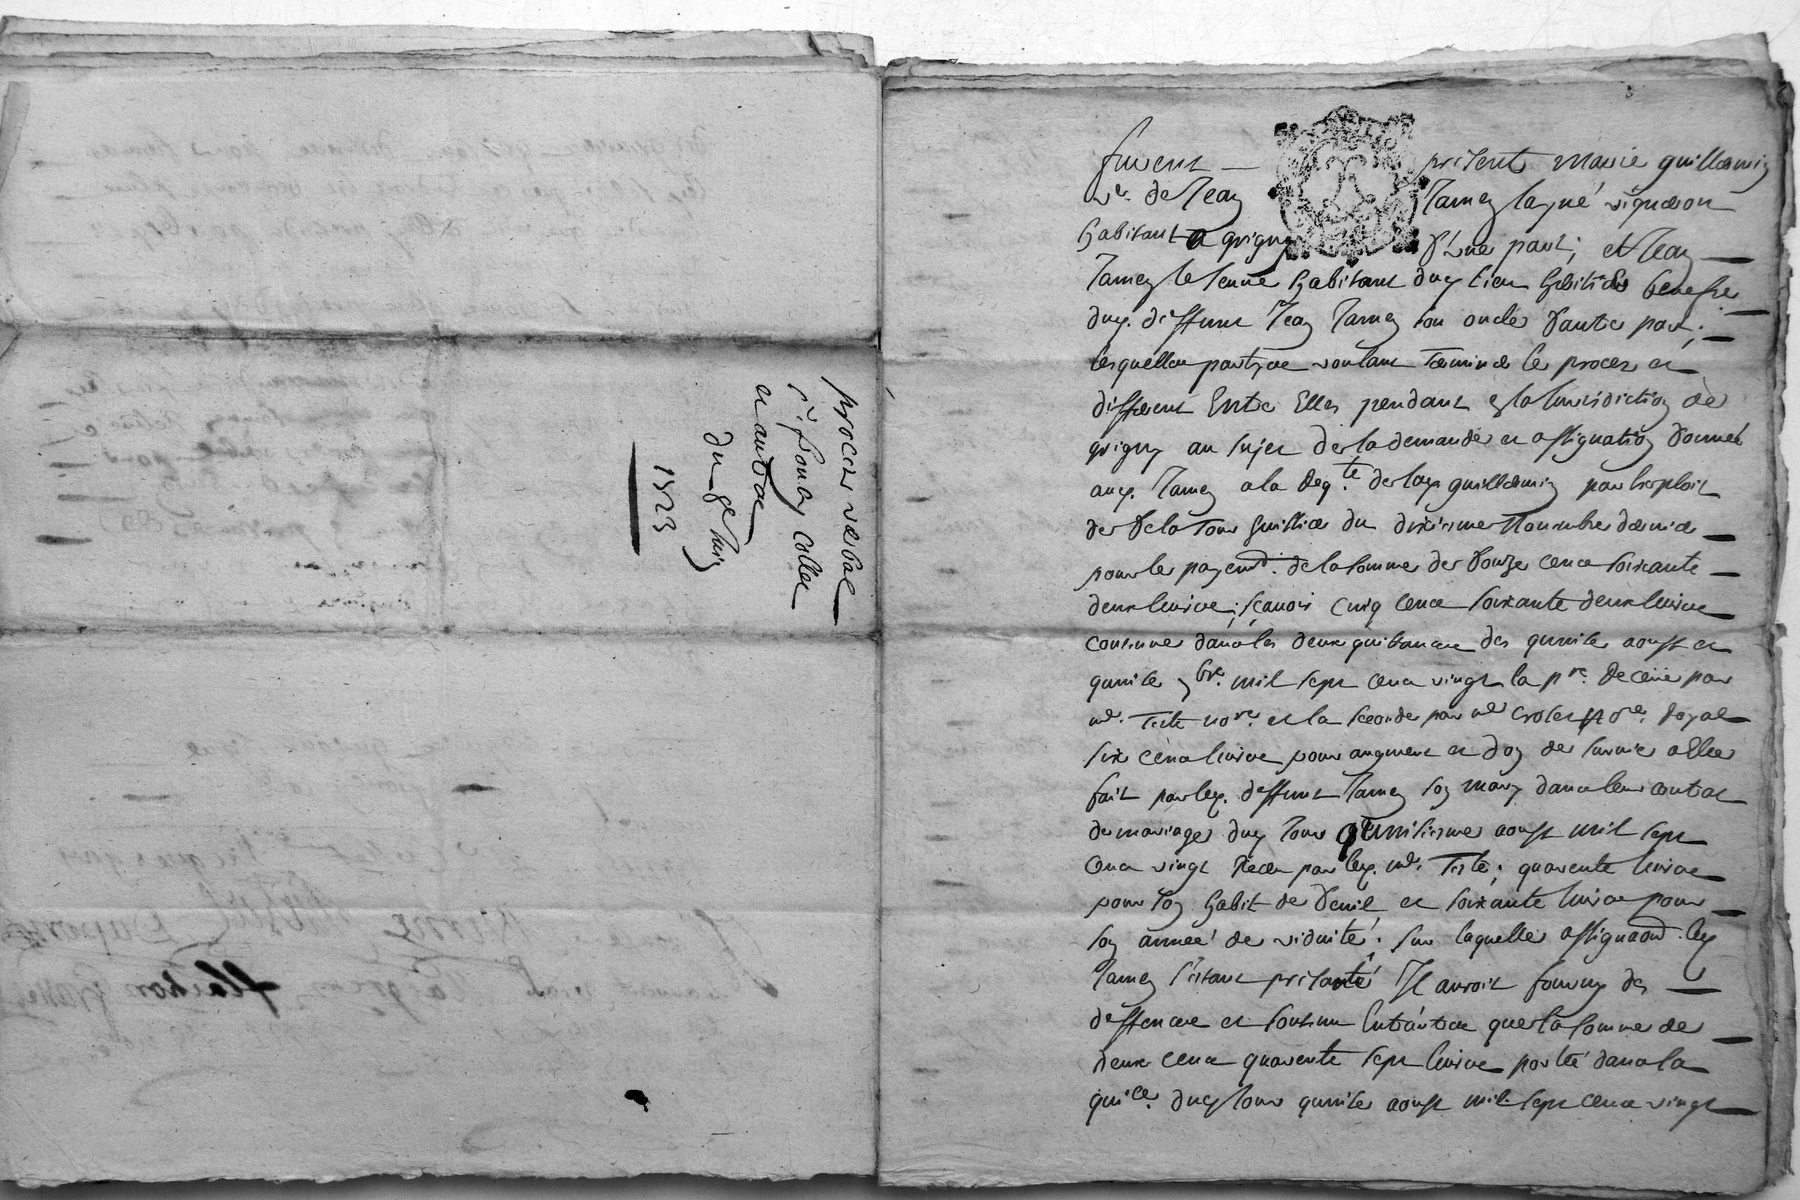 procès verbal
et autre
du 9e Juin
1723
furent présent marie guillermin
ve. de Jean Jamen layné vigneron
habitant a grigny d'une part; et Jean
Jamen le Jeune habitant dud. lieu
dud. deffunt Jean Jamen son oncle d'autre part;
lesquelles partyes voulant terminer le proces et
different Entre Elles pendant en la Jurisdiction de
grigny au sujet de la demande et assignation donnée
aud. Jamen a la reqte. de lad. guillermin par Exploit
de Delatour huissier du dixieme Novembre dernier
pour le payemt. de la somme de Douze cens soixante
deux livres; sçauoir cinq cens soixante deux livres
contenues dans les deux quittances des quinze aoust et
quinze 9bre. mil sept cens vingt la pre. Receüe par
me. Teste nore. et la seconde par me croset Nore. Royal
six cens livres pour augment et don de survie a Elle
fait par led. deffunt Jamen son mary dans leur contrat
de mariage dud. Jour quinzieme aoust mil sept
cens vingt Receu par led. me. Teste; quarente livres
pour son habit de deuil et soixante livres pour
son année de viduité; sur laquelle assignaon. led.
Jamen s'estant presenté Il auroit fourny de
deffences et soutenu Entr'autres que la somme de
deux cens quarente sept livres portée dans la
quice. dud. Jour quinze aoust mil sept cens vingt